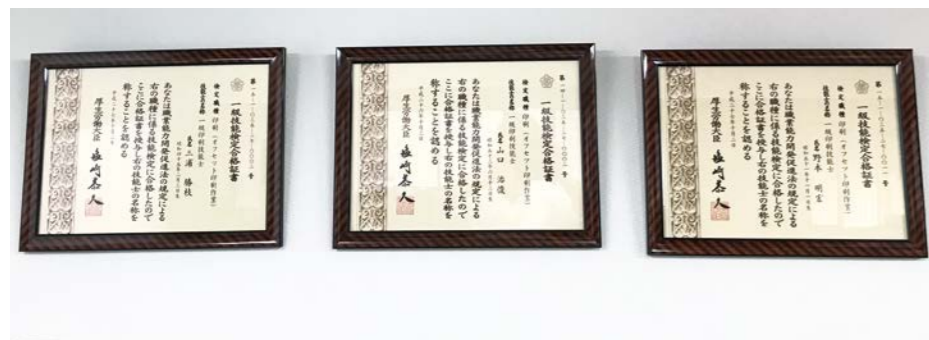 一級技能検定合格証書
検定職種 印刷(オフセット印刷作業)
技能士の名称 一級印刷技能士
氏名 三浦 勝枝
あなたは職業能力開発促進法の規定による
右の職種に係る技能検定に合格したので
ここに合格証書を授与し右の技能士の名称を
称することを認める
厚生労働大臣
一級技能検定合格証書
検定職種 印刷(オフセット印刷作業)
技能士の名称 一級印刷技能士
氏名 山口
あなたは職業能力開発促進法の規定による
右の職種に係る技能検定に合格したので
ここに合格証書を授与し右の技能士の名称を
称することを認める
厚生労働大臣
一級技能検定合格証書
検定職種 印刷(オフセット印刷作業)
技能士の名称 一級印刷技能士
氏名 野本 明
あなたは職業能力開発促進法の規定による
右の職種に係る技能検定に合格したので
ここに合格証書を授与し右の技能士の名称を
称することを認める
厚生労働大臣